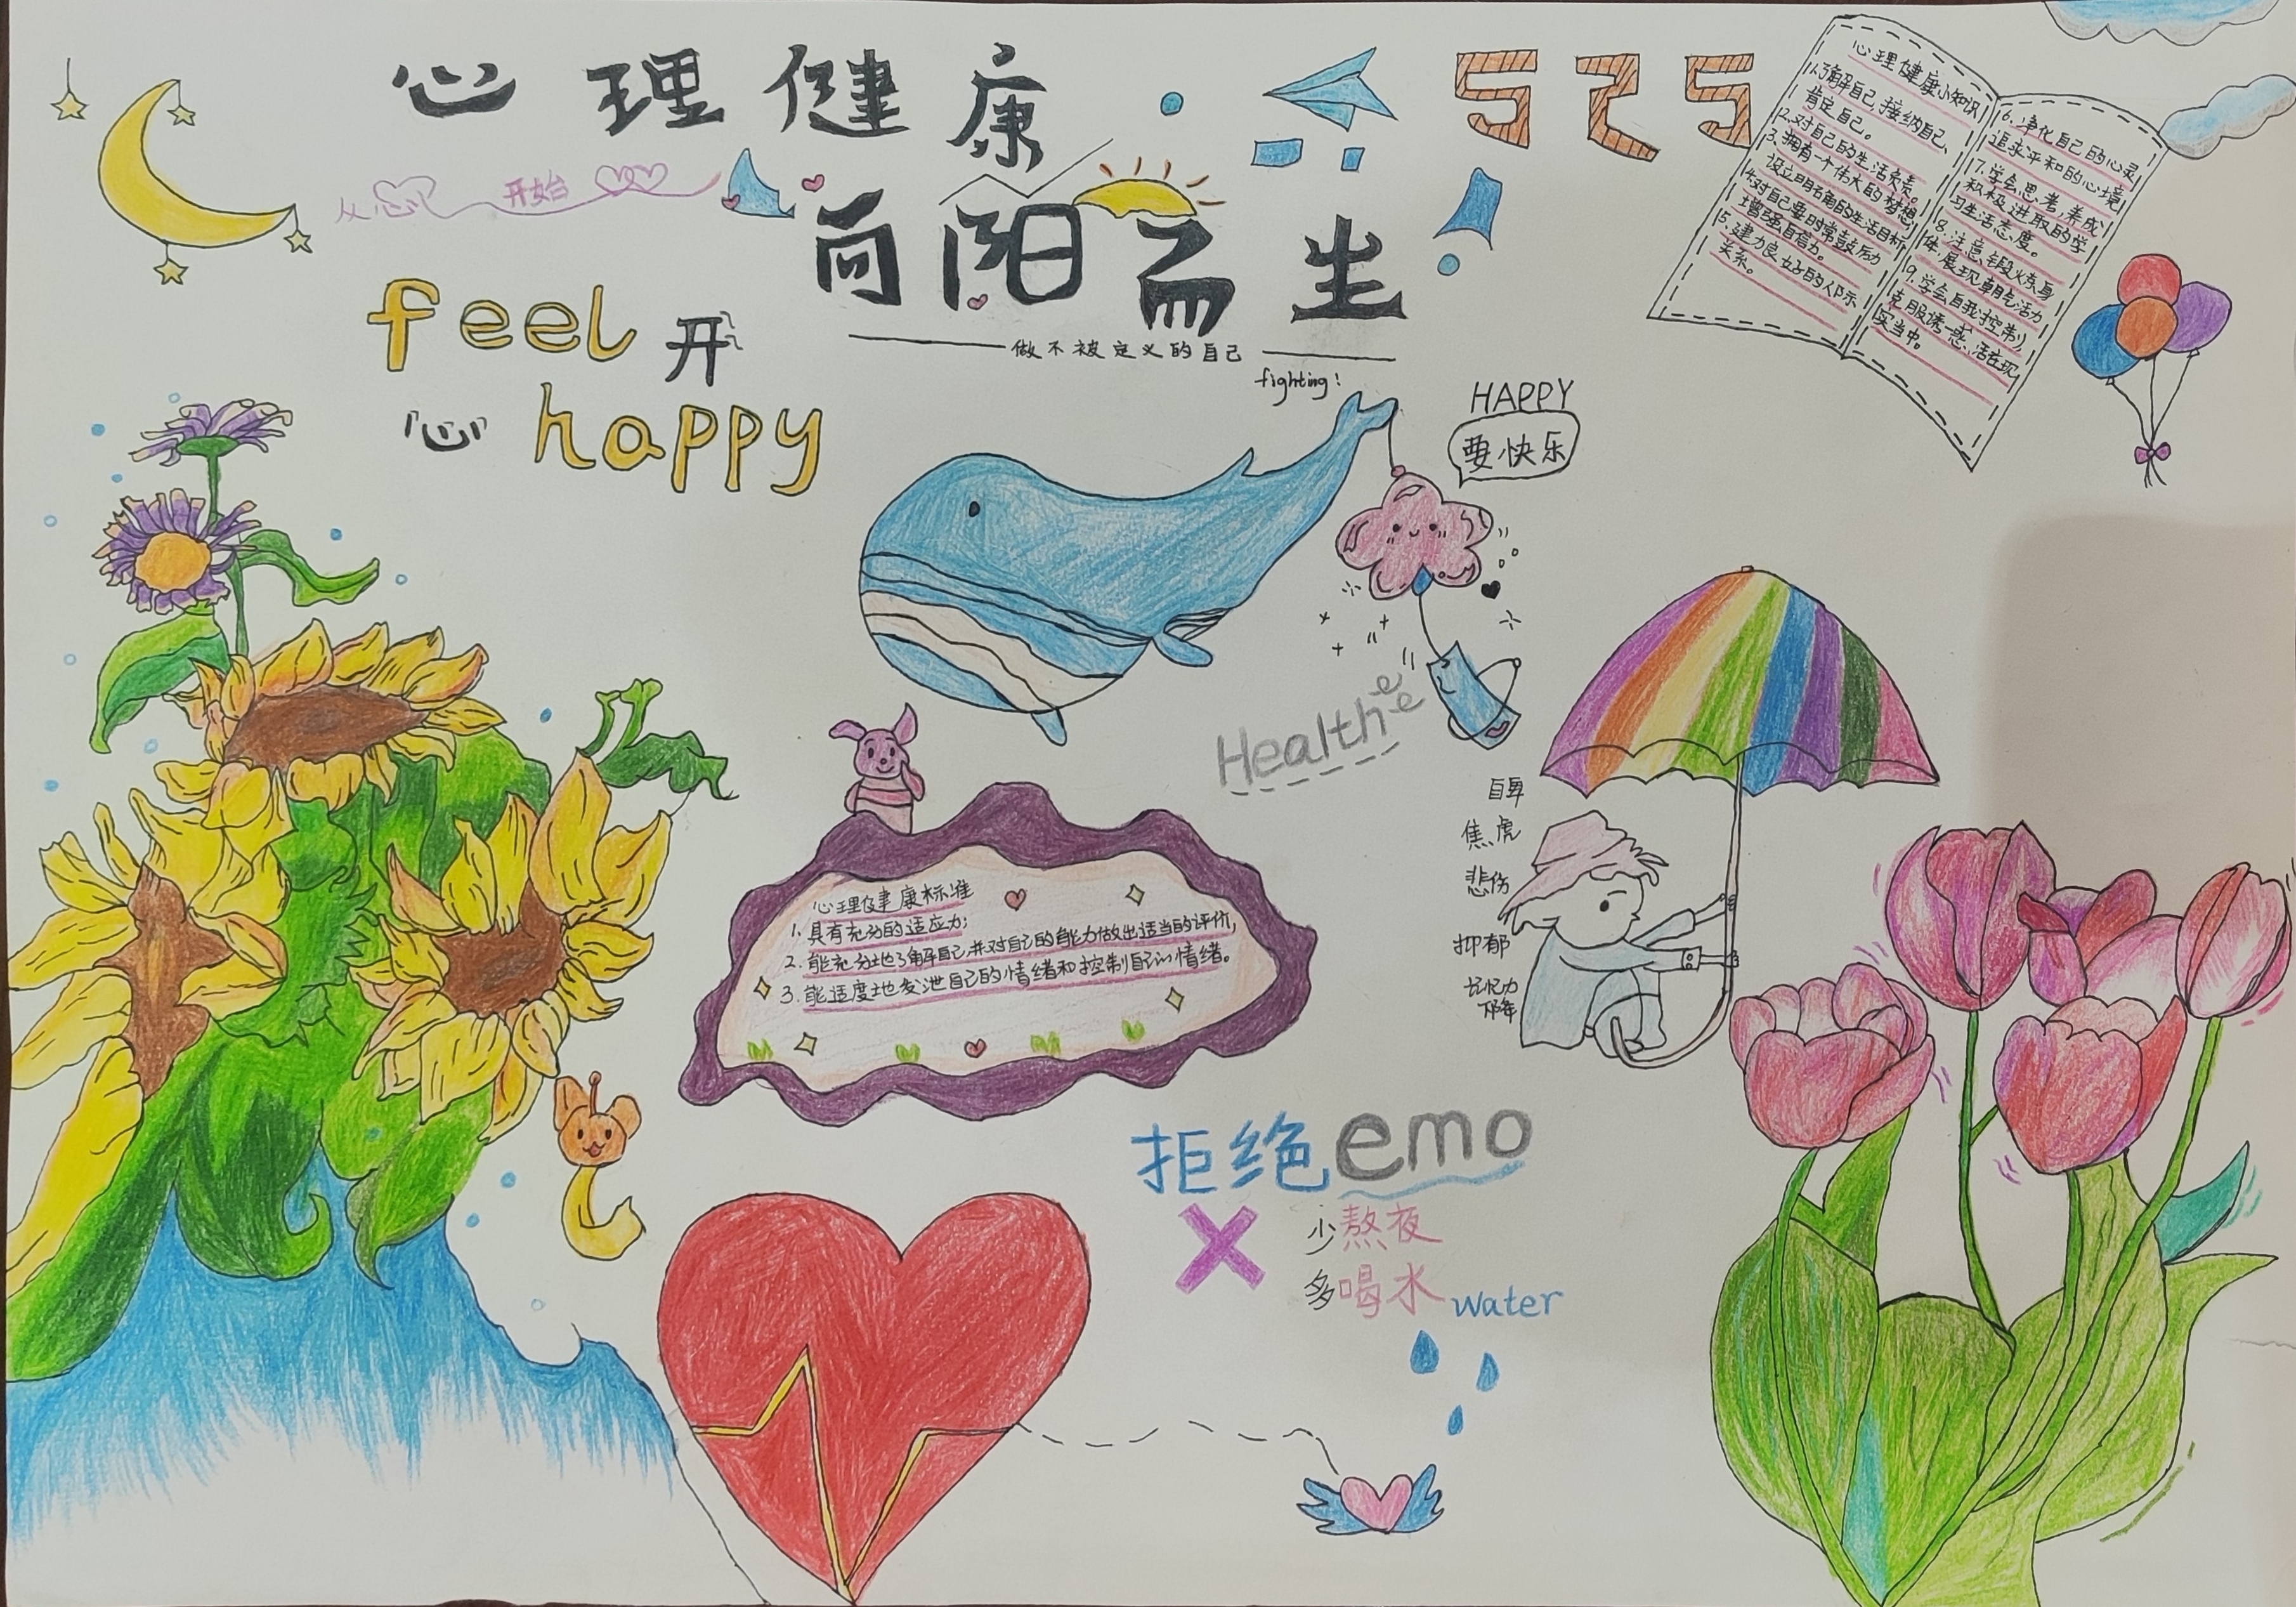 心理健康
525
从心 开始
向阳而生
做不被定义的自己
fighting!
feel 开
心 happy
心理健康小知识
1.了解自己,接纳自己、
肯定自己。
2.对自己的生活负责。
3.拥有一个伟大的梦想,
设立明确的生活目标
4.对自己要时常鼓励
增强自信力。
5.建力良好的人际
关系。
6.净化自己的心灵
追求平和的心境
7.学会思考,养成
积极进取的学
习生活态度。
8.注意锻炼身
体,展现朝气活力
9.学会自我控制,
克服诱惑、活在现
实当中。
HAPPY
要快乐
Healthee
心理健康标准
1.具有充分的适应力;
2.能充分地了解自己,并对自己的能力做出适当的评价,
3.能适度地发泄自己的情绪和控制自己的情绪。
自卑
焦虑
悲伤
抑郁
记忆力
下降
拒绝emo
少熬夜
多喝水 water